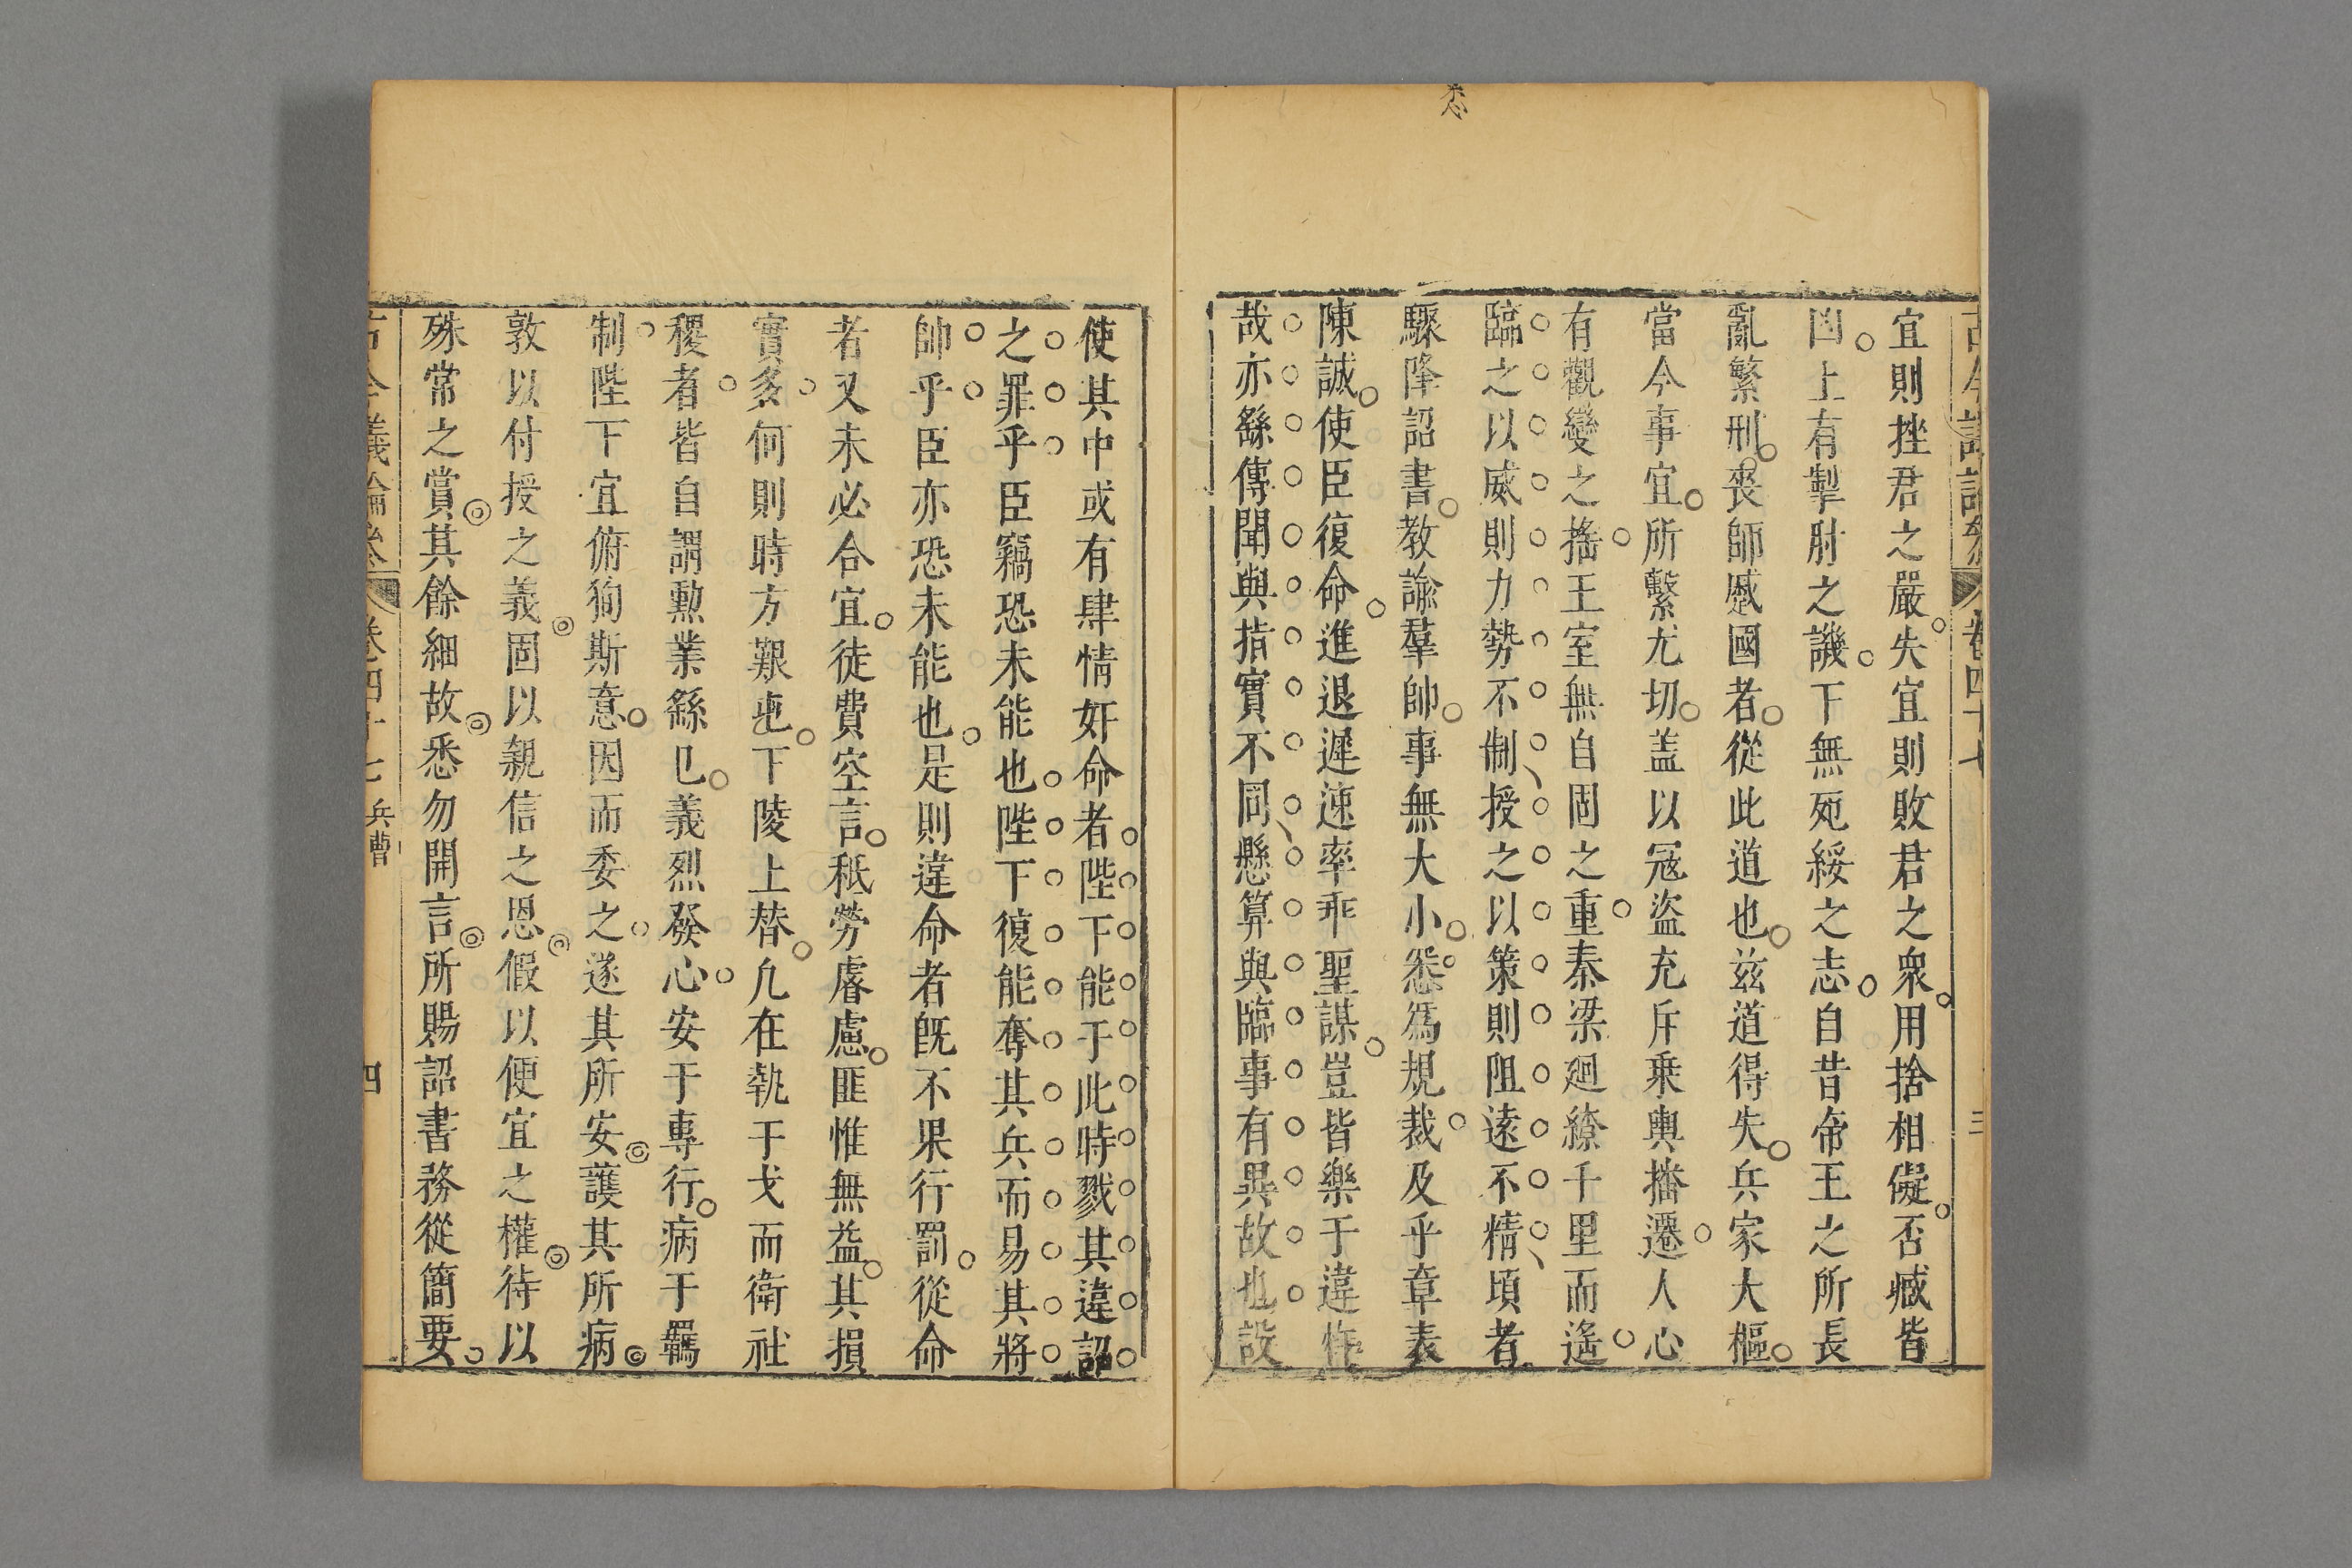 宜則挫君之嚴失宜則敗君之衆用捨相礙否臧皆
凶上有掣肘之譏下無死綏之志自昔帝王之所長
亂繁刑喪師蹙國者從此道也兹道得失兵家大樞
當今事宜所繫尤切盖以冦盗充斥乗輿播遷人心
有觀變之搖王室無自固之重秦梁廻繚千里而遙
臨之以威則力勢不制授之以策則阻逺不精頃者
驟降詔書教諭羣帥事無大小悉爲規裁及乎章表
陳誠使臣復命進退遲速率乖聖謀豈皆樂于違忤
哉亦繇傳聞與指實不同懸算與臨事有異故也設
使其中或有肆情奸命者陛下能于此時戮其違詔
之罪乎臣竊恐未能也陛下復能奪其兵而易其將
帥乎臣亦恐未能也是則違命者旣不果行罰從命
者又未必合宜徒費空言秖勞睿慮匪惟無益其損
實多何則時方艱屯下陵上替凢在執干戈而衛社
稷者皆自謂勳業繇已義烈發心安于專行病于羈
制陛下宜俯狥斯意因而委之遂其所安護其所病
敦以付授之義固以親信之恩假以便宜之權待以
殊常之賞其餘細故悉勿開言所賜詔書務從簡要
卷四十七 兵曹
四